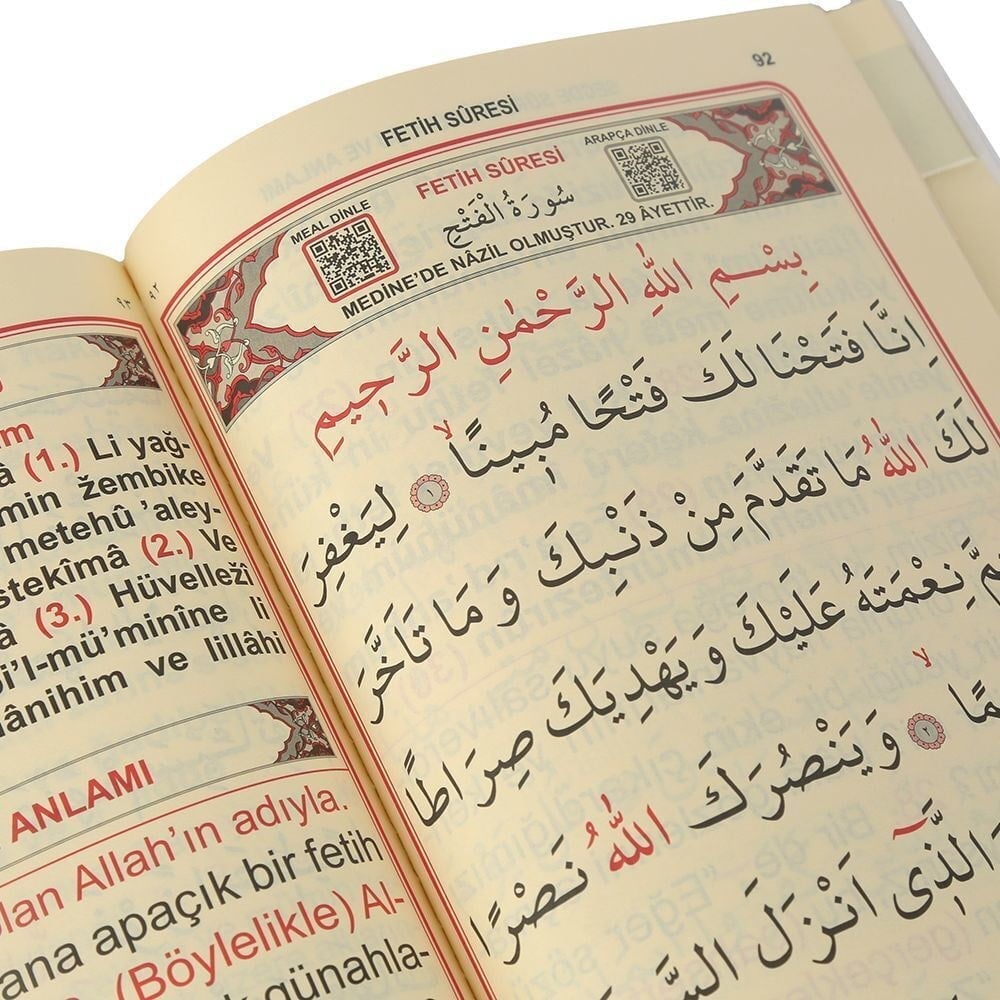 92
FETİH SÛRESİ
MEAL DİNLE
FETİH SÛRESİ
ARAPÇA DİNLE
سُورَةُ الْفَتْحِ
MEDİNE'DE NÂZİL OLMUŞTUR. 29 ÂYETTİR.
بِسْمِ اللّٰهِ الرَّحْمٰنِ الرَّح۪يمِ
اِنَّا فَتَحْنَا لَكَ فَتْحًا مُب۪ينًاۙ ﴿١﴾ لِيَغْفِرَ
لَكَ اللّٰهُ مَا تَقَدَّمَ مِنْ ذَنْبِكَ وَمَا تَاَخَّرَ
نِعْمَتَهُ عَلَيْكَ وَيَهْدِيَكَ صِرَاطًا
ۙ ﴿٢﴾ وَيَنْصُرَكَ اللّٰهُ نَصْرًا
اَنْزَلَ
٩٢
(1.) Li yağ-
min žembike
metehû 'aley-
(2.) Ve
(3.) Hüvelležî
li
ve lillâhi
ANLAMI
Allah'ın adıyla.
apaçık bir fetih
(Böylelikle) Al-
günahla-